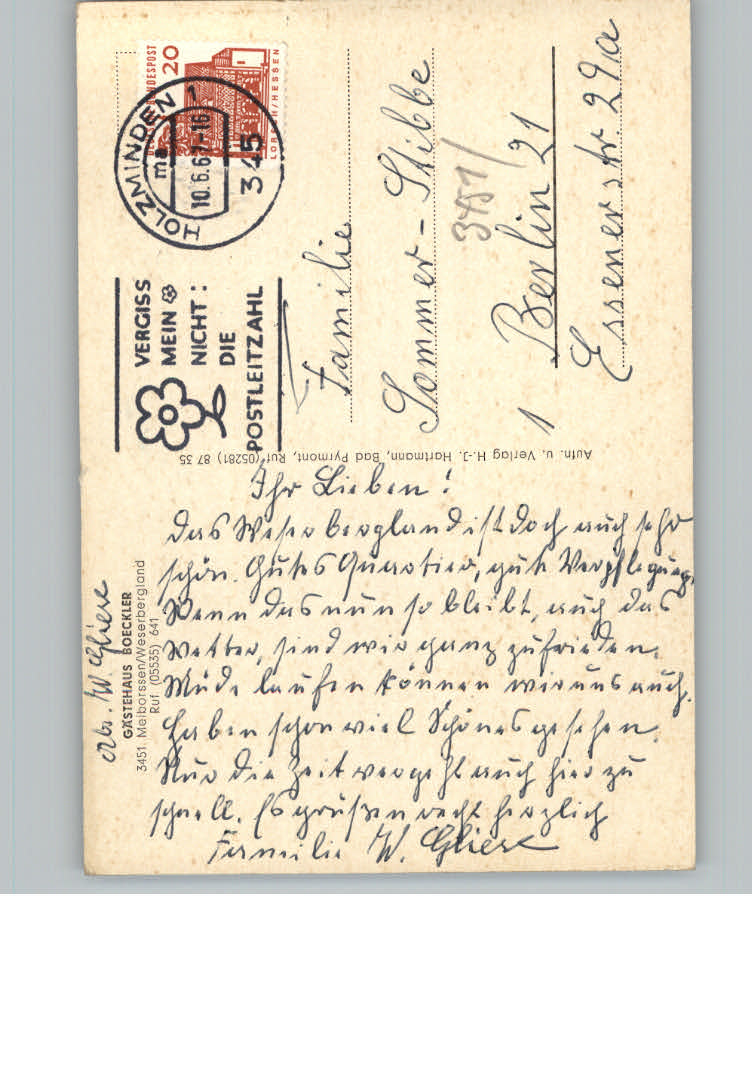 Abs. W. Gliese
GÄSTEHAUS BOECKLER
3451 Meiborssen/Weserbergland
Ruf (05535) 641
Ihr Lieben!
Das Weserbergland ist doch auch sehr
schön. Gutes Quartier, gute Verpflegung.
Wenn das nun so bleibt, auch das
Wetter, sind wir ganz zufrieden.
Müde laufen können wir uns auch.
Haben schon viel Schönes gesehen.
Nur die Zeit vergeht auch hier zu
schnell. Es grüßen recht herzlich
Familie W. Gliese
Aufn. u. Verlag H.-J. Hartmann, Bad Pyrmont, Ruf (05281) 87 35
VERGISS
MEIN
NICHT:
DIE
POSTLEITZAHL
HOLZMINDEN 1
ma
10.6.67-16
345
DEUTSCHE BUNDESPOST
20
LORSCH/HESSEN
Familie
Sommer-Stibbe
3451/
1 Berlin 21
Essener str. 29a